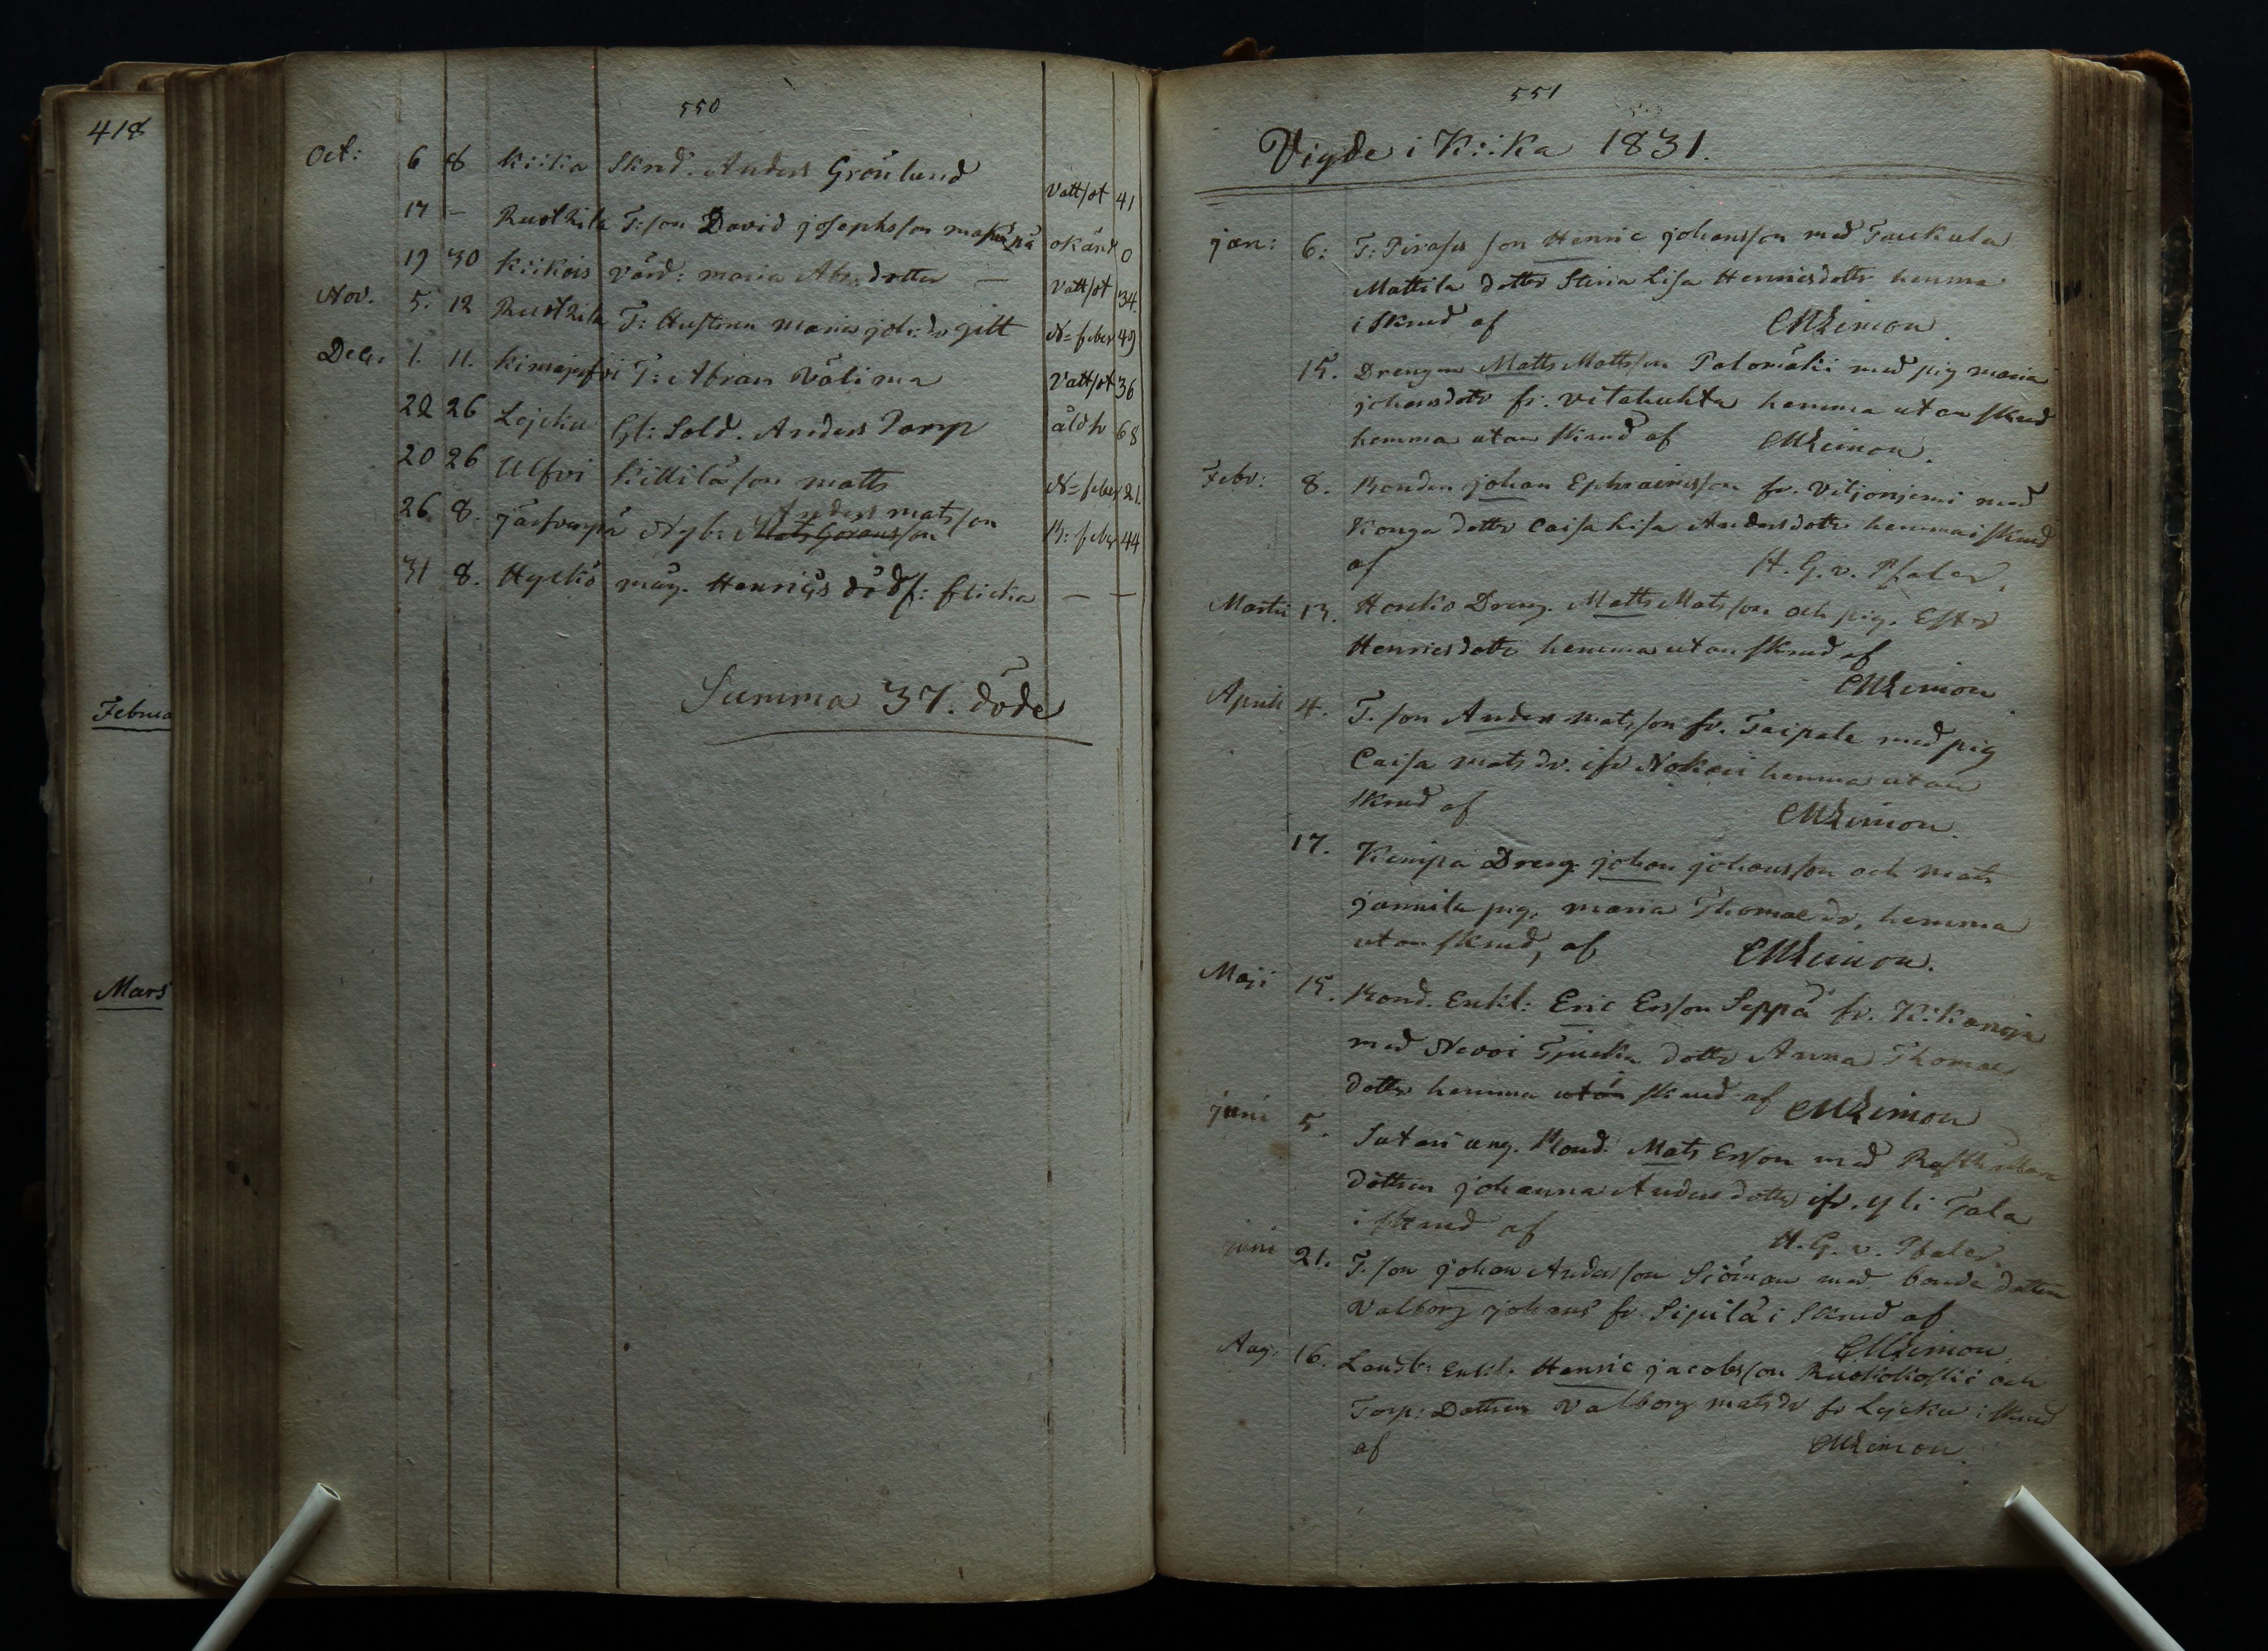 418
Februa
Mars
550
Oct: 6 8 Kiika Skrd. Anders Grönlund Vattsot 41
17 – Rustkila T: son David josephsson okänd 0
19 30 Kiikois Vård: maria Abr. dotter — Vattsot 34
Nov. 5. 12 Rustkila T: Hustrun maria joh: dr gift N=feber 49
Dec. 1. 11. T: Abram Välima Vattsot 36
22 26 Lejcku Gl: Sold. Anders Damp åldh 68
20 26 Ulfvi Killilä son matts N=feber 21.
Anders matsson
26 8. B: feber 44
31 8. Hyckö måg. Henrics dödf: flicka — —
Summa 37. döde
551
Vigde i K:Ka 1831.
jan: 6: T: son Henric johansson med Taukula
Mattila dotter Stina Lisa Henricsdotter hemma
i skrud af CMLimon.
15. Drengen Matts Mattsson Palomäki med pig maria
johansdotr fr. vitakuhta hemma utan skrud
hemma utan skrud af CMLimon.
Febr: 8. Bonden johan Ephraimsson fr. Viljonjemi med
Konga dotter Caisa Lisa Andersdotr hemma i skrud
af H. G. v. Pfaler.
Martii 13. Houkio Dreng. Matts Matsson och pig. Ester
Henricsdotr hemma utan skrud af
CMLimon
Aprili 4. T. son Anders matsson fr. Taipale med pig
Caisa mats dr. ifr Nokari hemma utan
skrud af CMLimon.
17. Kempä Dreng. johan johansson och mats
junnila pig. maria Thomae dr, hemma
utan skrud, af CMLimon.
Maji 15. Bond. Enkl: Eric Ersson Seppä fr. K:Kangja
med Nevoi dotter Anna Thomae
dotter hemma i skrud af CMLimon
juni 5. Sutari ung. Bond. Mats Ersson med
dottren johanna Anders dotter ifr. yli Tala
i skrud af H. G. v. Pfaler.
juni 21. T. son johan Andersson Siöman med bonde dottren
Valborg johans fr. Sipilä i skrud af
CMLimon.
Aug. 16. Landb: Enkl. Henric jacobsson Ruohokoski och
Torp: Dottren Valborg mats dr fr Lejcku i skrud
af CMLimon.